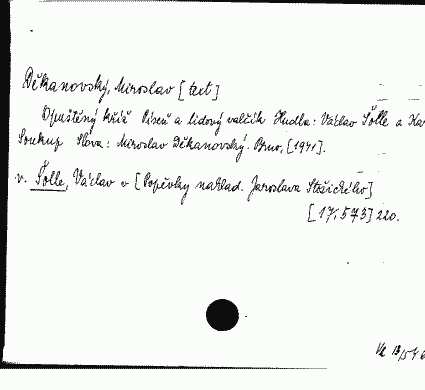 Děkanovský, Miroslav [text]
Opuštěný kříž Píseň a lidový valčík Hudba: Václav Šolle a Kar
Soukup Slova: Miroslav Děkanovský. Brno, [1941].
v. Šolle, Václav v [Popěvky naklad. Jaroslava Stožického]
[17,573] 220.